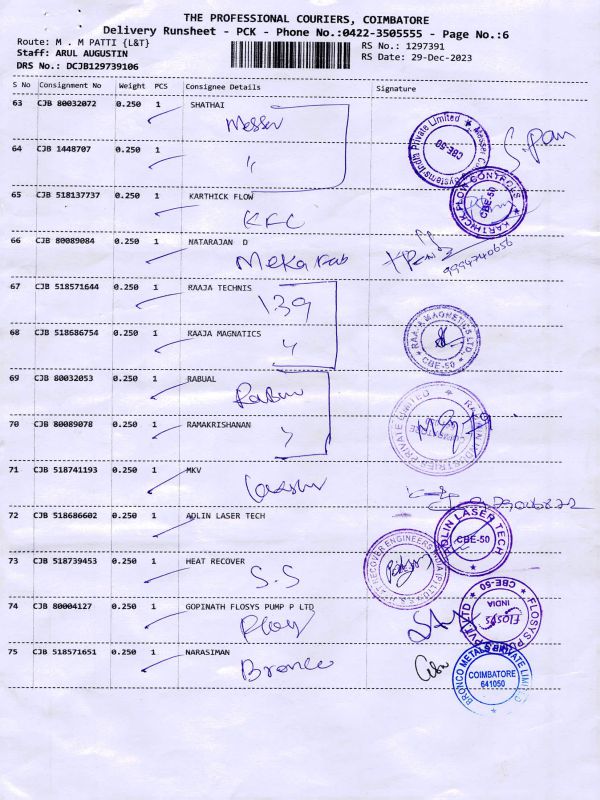 THE PROFESSIONAL COURIERS, COIMBATORE
Delivery Runsheet - PCK - Phone No.:0422-3505555 - Page No.:6
Route: M . M PATTI {L&T}
Staff: ARUL AUGUSTIN
DRS No.: DCJB129739106
RS No.: 1297391
RS Date: 29-Dec-2023
S No Consignment No Weight PCS Consignee Details Signature
63 CJB 80032072 0.250 1 SHATHAI
Messer
64 CJB 1448707 0.250 1
65 CJB 518137737 0.250 1 KARTHICK FLOW
KFC
KARTHICK FLOW CONTROLS
CBE-50
66 CJB 80089084 0.250 1 NATARAJAN D
Meka Fab
9994740656
67 CJB 518571644 0.250 1 RAAJA TECHNIS
139
68 CJB 518686754 0.250 1 RAAJA MAGNATICS
RAAJA MAGNETICS LTD.
CBE-50
69 CJB 80032053 0.250 1 RABUAL
70 CJB 80089078 0.250 1 RAMAKRISHANAN
71 CJB 518741193 0.250 1 MKV
72 CJB 518686602 0.250 1 ADLIN LASER TECH
ADLIN LASER TECH
CBE-50
73 CJB 518739453 0.250 1 HEAT RECOVER
S.S
74 CJB 80004127 0.250 1 GOPINATH FLOSYS PUMP P LTD
FLOSYS
INDIA
CBE-50
75 CJB 518571651 0.250 1 NARASIMAN
Bronco
BRONCO METALS PRIVATE LIMITED
COIMBATORE
641050